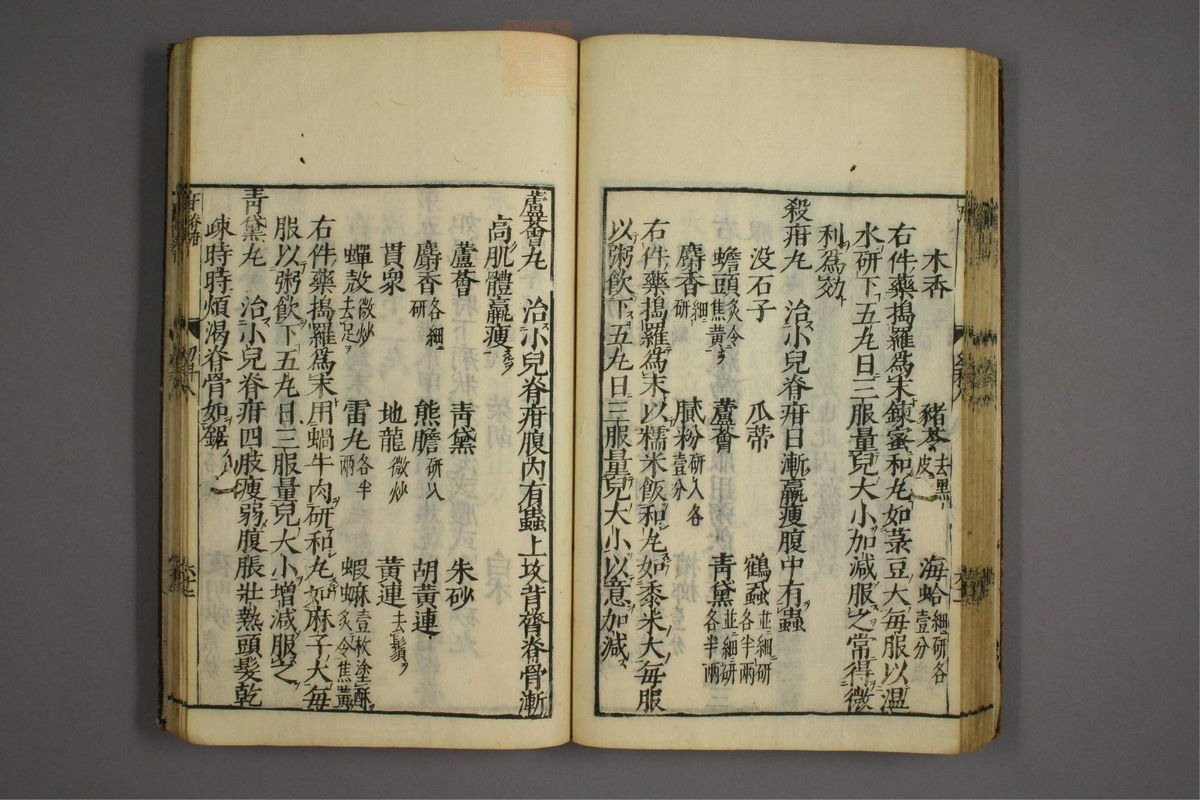 木香 豬苓去黑皮 海蛤細研各壹分
右件藥搗羅爲末鍊蜜和丸如菉豆大每服以温
水研下五丸日三服量兒大小加減服之常得微
利爲効
殺疳丸 治小兒脊疳日漸羸瘦腹中有蟲
没石子 瓜蔕 鶴蝨並細研各半兩
蟾頭炙令焦黃 蘆薈 靑黛並細研各半兩
麝香細研 膩粉研入各壹分
右件藥搗羅爲末以糯米飯和丸如黍米大每服
以粥飮下五丸日三服量兒大小以意加減
蘆薈丸 治小兒脊疳腹内有蟲上攻背膂脊骨漸
高肌體羸瘦
蘆薈 靑黛 朱砂
麝香各細研 熊膽研入 胡黃連
貫衆 地龍微炒 黃連去鬚
蟬殻微炒去足 雷丸各半兩 蝦蟆壹枚塗酥炙令焦黃
右件藥搗羅爲末用蝸牛肉研和丸如麻子大每
服以粥飮下五丸日三服量兒大小增減服之
靑黛丸 治小兒脊疳四肢瘦弱腹脹壯熱頭髮乾
疎時時煩渴脊骨如鋸